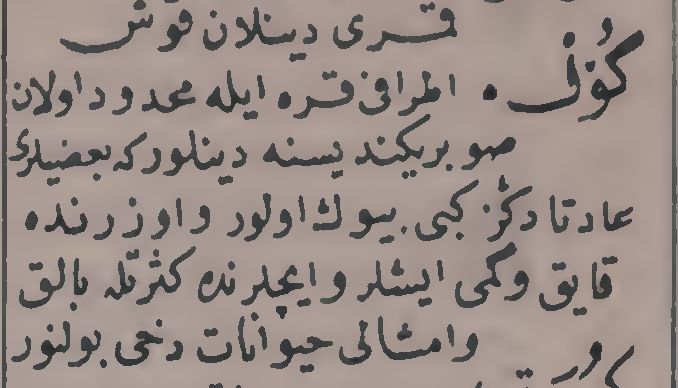 قمری دینلان قوش
كول ٠ اطرافی قره ایله محدود اولان
صو بریکندیسنه دینلور که بعضیلری
عادتا دکز کبی بیوك اولور و اوزرنده
قایق و کمی ایشلر و ایچلرنده کثرتله بالق
و امثالی حیوانات دخی بولنور